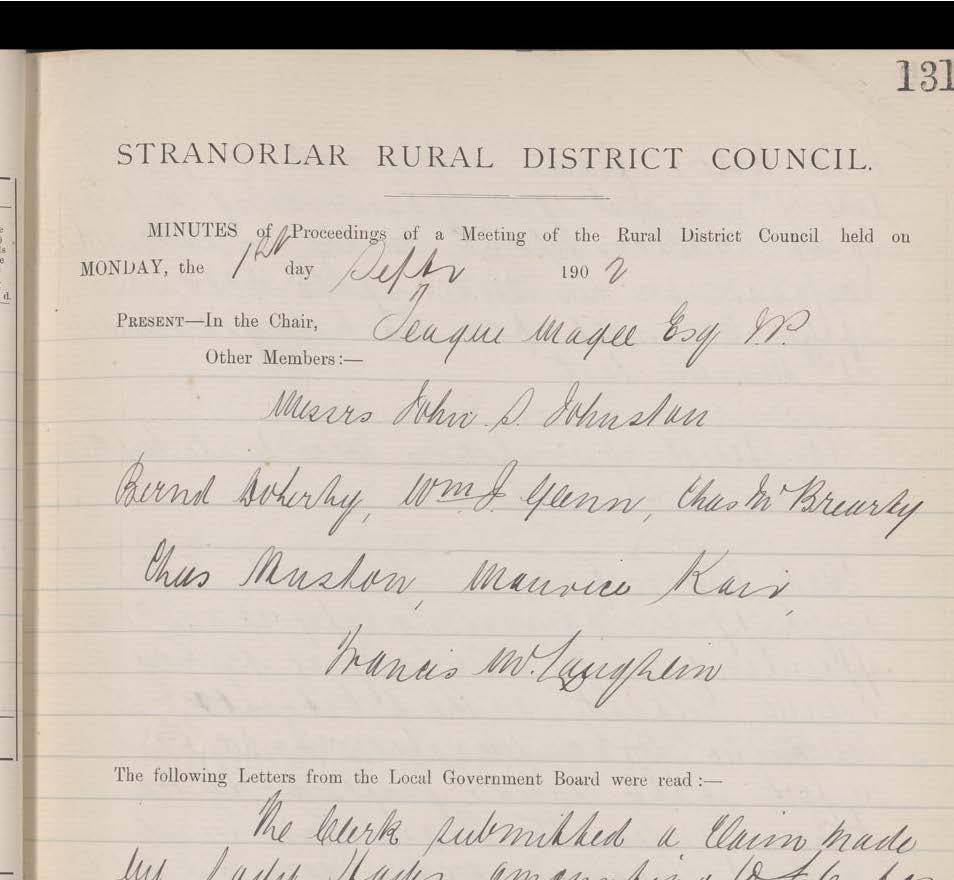 131
STRANORLAR RURAL DISTRICT COUNCIL.
MINUTES of Proceedings of a Meeting of the Rural District Council held on
MONDAY, the day Septr 1902
PRESENT—In the Chair, Teague Magee Esq J.P.
Other Members:—
Messrs John S. Johnston
Bernd Doherty, Wm J. Glenn, Chas McBrearty
Chas Maurice Kair,
Francis McLaughlin
The following Letters from the Local Government Board were read :—
The Clerk submitted a Claim made
by Lady